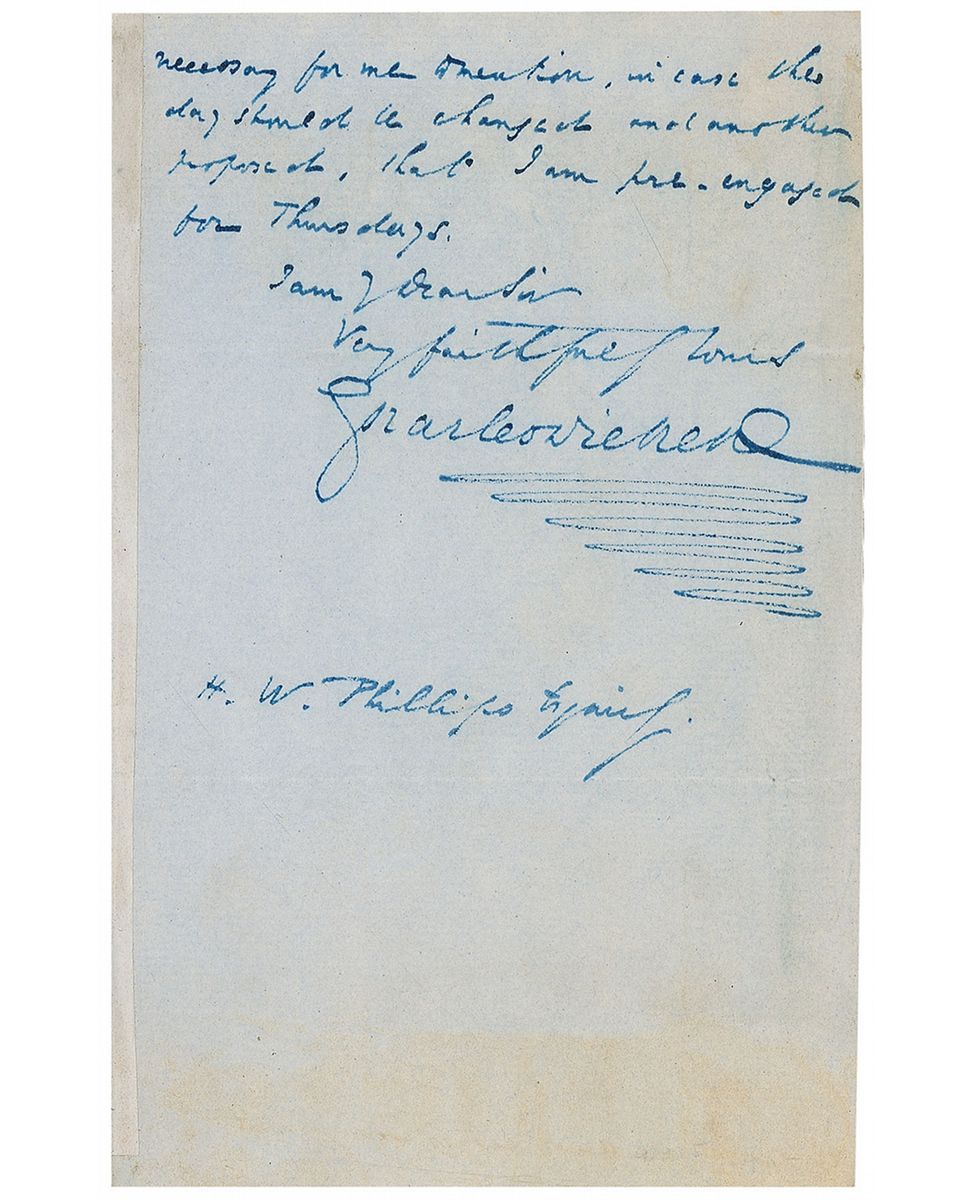 necessary for me to mention, in case the
day should be changed and another
proposed, that I am pre-engaged
for Thursdays.
I am my dear Sir
Very faithfully Yours
Charles Dickens
H. W. Phillips Esquire.